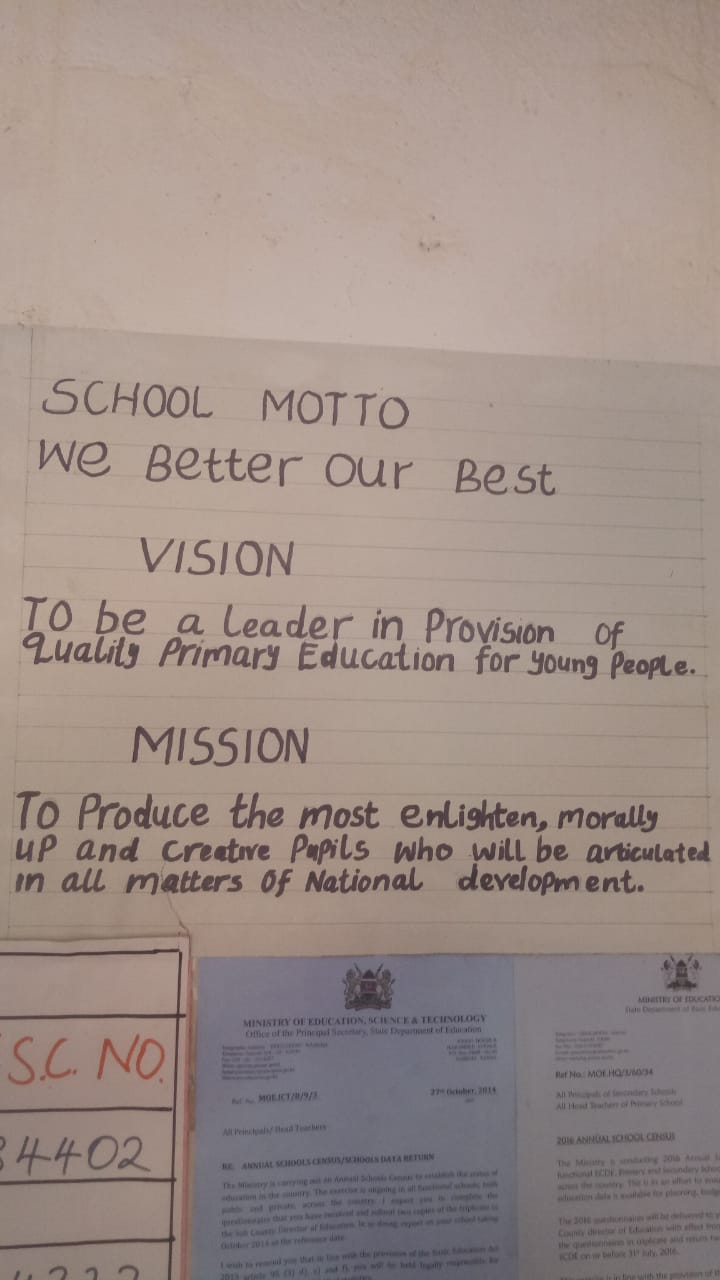 SCHOOL MOTTO
We Better Our Best
VISION
To be a Leader in Provision of
Quality Primary Education for young People.
MISSION
To Produce the most enlighten, morally
up and creative Pupils who will be articulated
in all matters of National development.
S.C. NO.
4402
MINISTRY OF EDUCATION, SCIENCE & TECHNOLOGY
Office of the Principal Secretary, State Department of Education
Ref. No. MOE.ICT/8/9/3
27th October, 2014
All Principals/ Head Teachers
RE: ANNUAL SCHOOLS CENSUS/SCHOOLS DATA RETURN
The Ministry is carrying out an Annual Schools Census to establish the status of
education in the country. The exercise is ongoing in all functional schools, both
public and private, across the country. I expect you to complete the
questionnaires that you have received and submit two copies of the triplicate to
the Sub County Director of Education. In so doing, report on your school taking
October 2014 as the reference date.
I wish to remind you that in line with the provision of the Basic Education Act
MINISTRY OF EDUCATIO
State Department of Basic Edu
Ref No.: MOE.HQ/3/60/34
All Principals of Secondary Schools
All Head Teachers of Primary School
2016 ANNUAL SCHOOL CENSUS
The Ministry is conducting 2016 Annual
functional ECDE, Primary and Secondary
across the country. This is an effort to
education data is available for planning,
The 2016 questionnaires will be delivered to
County director of Education with effect from
the questionnaires in triplicate and return
ECDE on or before 31st July, 2016.